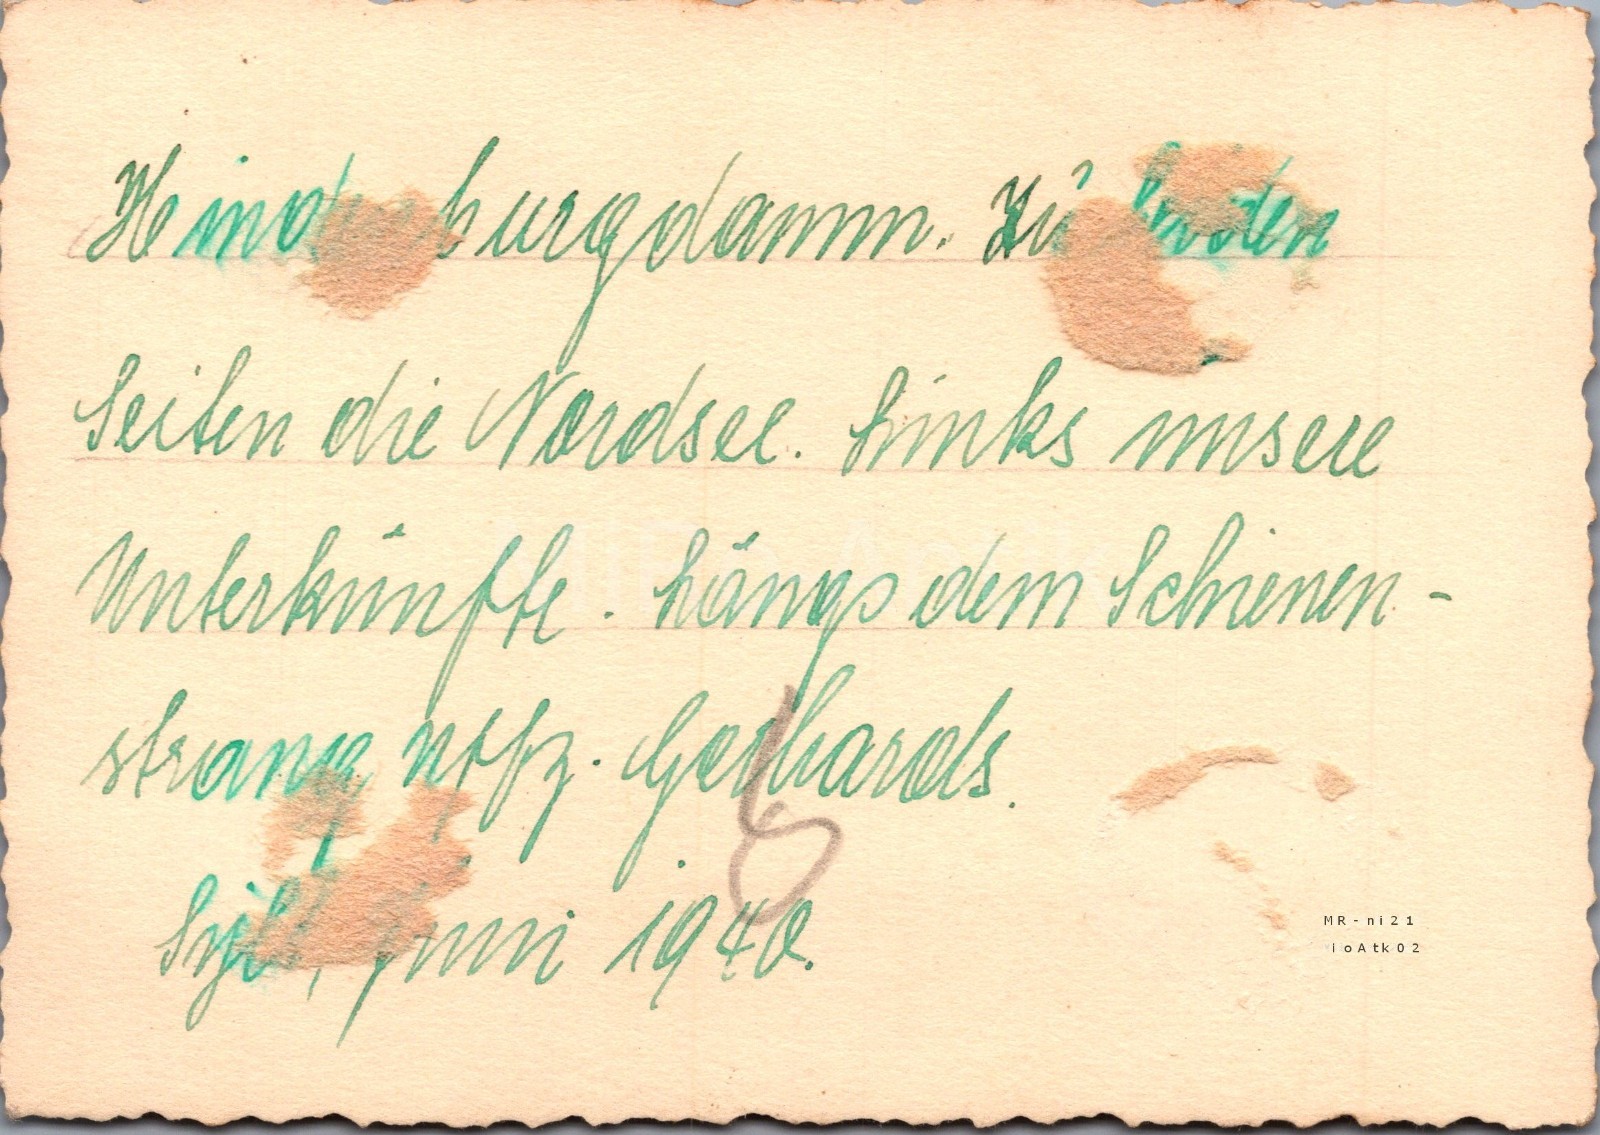 Hindenburgdamm. Zu beiden
Seiten die Nordsee. Links unsere
Unterkünfte. Längs dem Schienen-
strang Uffz. Gerhards.
Sylt, Juni 1940.
MR-ni21
ioAtk02